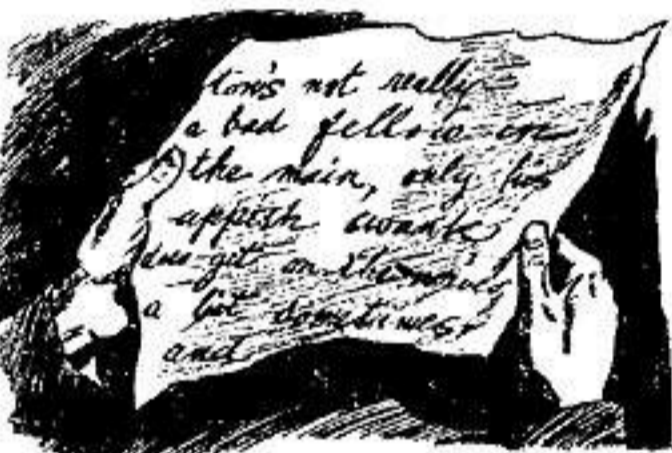 ton's not really
a bad fellow in
the main, only his
uppish swank
does get on the mind
a bit sometimes
and